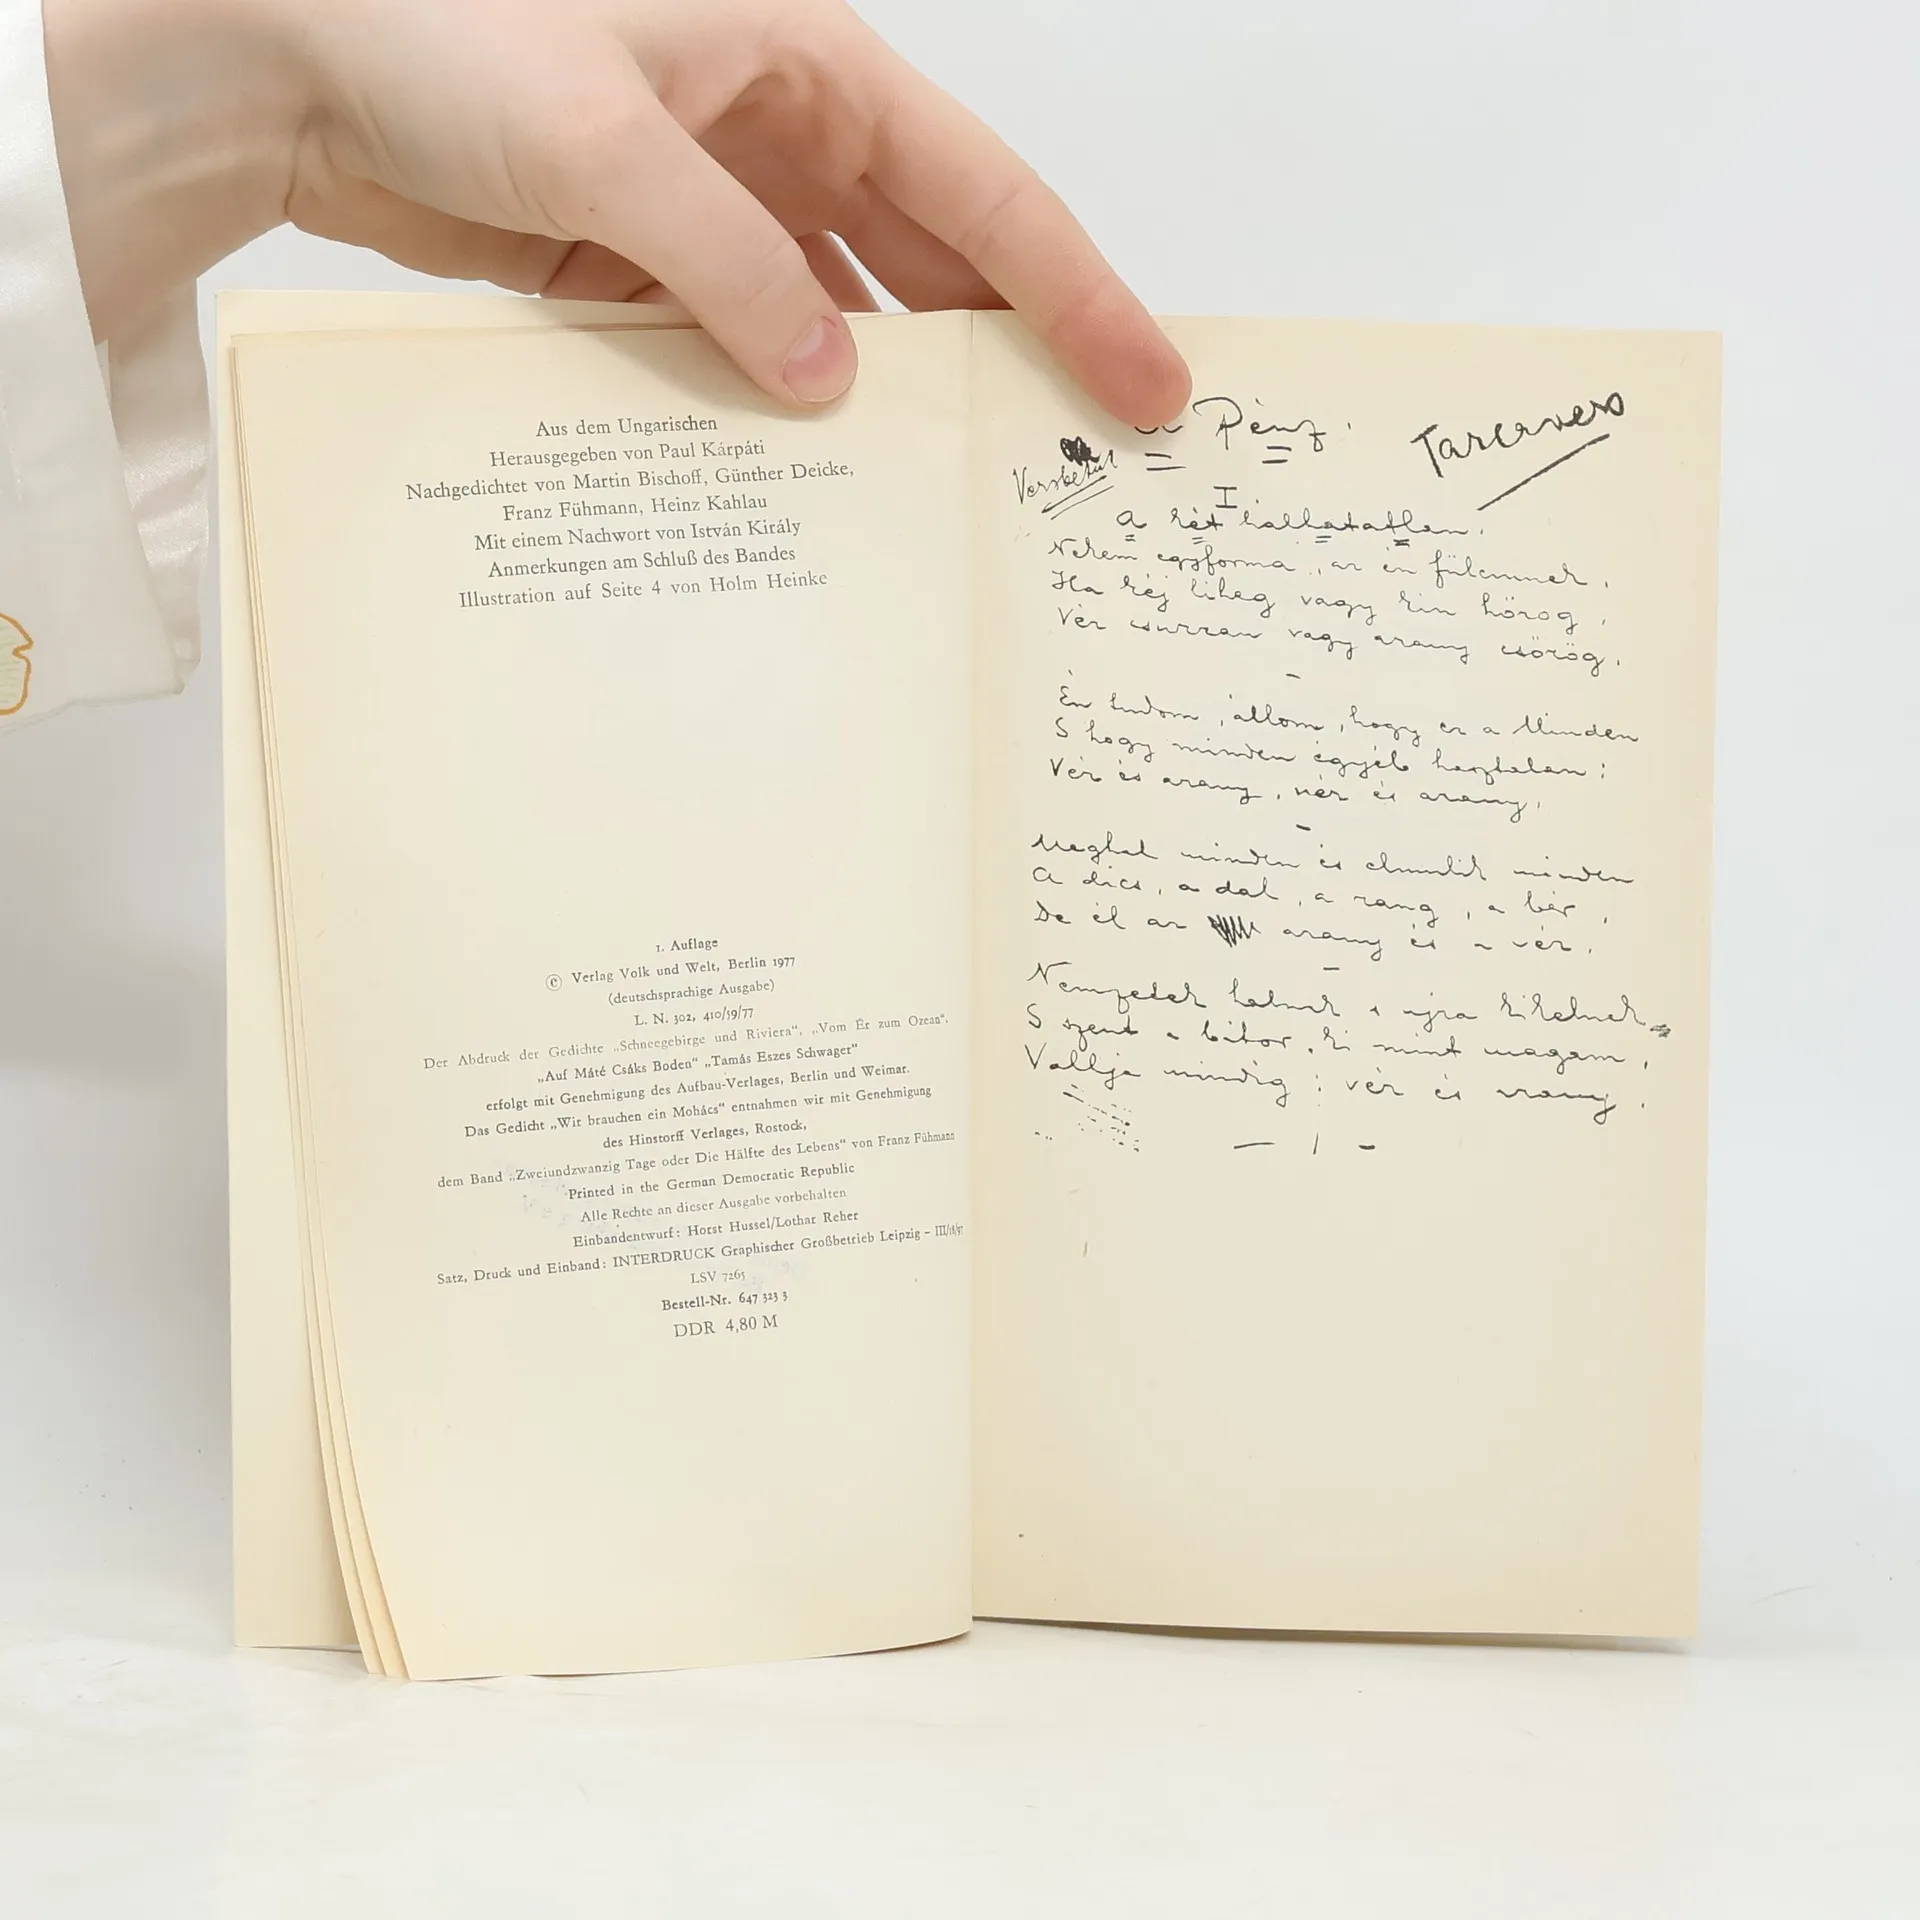 Aus dem Ungarischen
Herausgegeben von Paul Kárpáti
Nachgedichtet von Martin Bischoff, Günther Deicke,
Franz Fühmann, Heinz Kahlau
Mit einem Nachwort von István Király
Anmerkungen am Schluß des Bandes
Illustration auf Seite 4 von Holm Heinke
1. Auflage
© Verlag Volk und Welt, Berlin 1977
(deutschsprachige Ausgabe)
L. N. 302, 410/59/77
Der Abdruck der Gedichte „Schneegebirge und Riviera“, „Vom Ér zum Ozean“,
„Auf Máté Csáks Boden“ „Tamás Eszes Schwager“
erfolgt mit Genehmigung des Aufbau-Verlages, Berlin und Weimar.
Das Gedicht „Wir brauchen ein Mohács“ entnahmen wir mit Genehmigung
des Hinstorff Verlages, Rostock,
dem Band „Zweiundzwanzig Tage oder Die Hälfte des Lebens“ von Franz Fühmann
Printed in the German Democratic Republic
Alle Rechte an dieser Ausgabe vorbehalten
Einbandentwurf: Horst Hussel/Lothar Reher
Satz, Druck und Einband: INTERDRUCK Graphischer Großbetrieb Leipzig – III/18/97
LSV 7265
Bestell-Nr. 647 323 3
DDR 4,80 M
Pénz.
I
A két halhatatlan.
Nekem egyforma, az én fülemnek,
Ha kéj liheg vagy kín hörög,
Vér csurran vagy arany csörög.
Én tudom, állom, hogy ez a Minden
S hogy minden égyéb hasztalan:
Vér és arany, vér és arany.
Meghal minden és elmulik minden
A dics, a dal, a rang, a bér,
De él az arany és a vér.
Nemzetek halnak s ujra kikelnek
S szent a bátor, ki mint magam,
Vallja mindig: vér és arany.